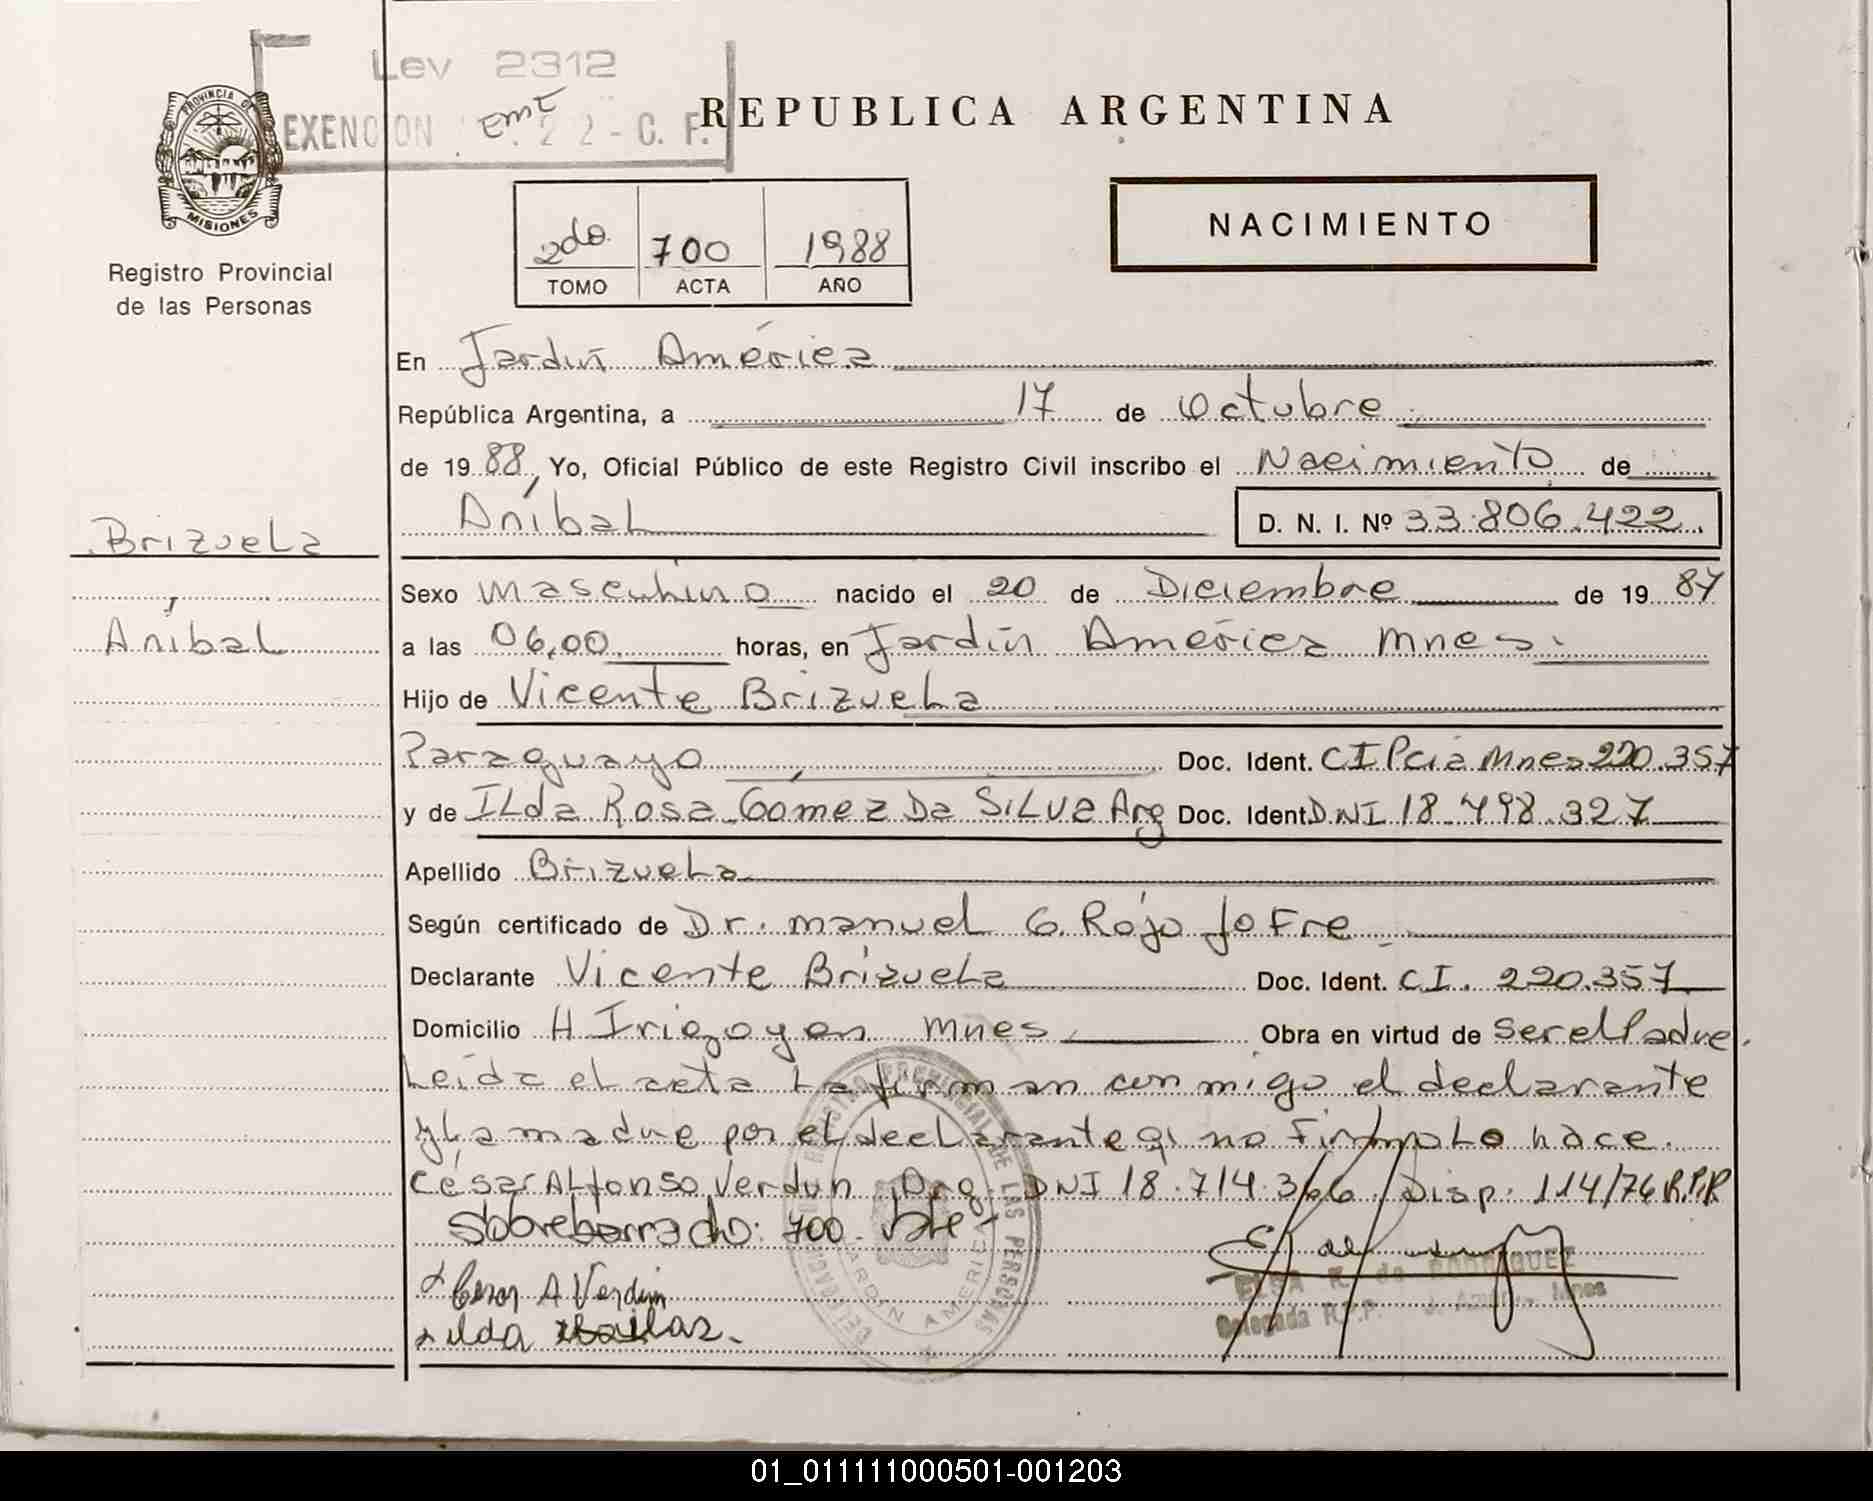 Ley 2312
EXENCION 22 - C. F.
REPUBLICA ARGENTINA
PROVINCIA DE
MISIONES
Registro Provincial
de las Personas
2do. 700 1988
TOMO ACTA AÑO
NACIMIENTO
En Jardín América
República Argentina, a 17 de Octubre
de 1988, Yo, Oficial Público de este Registro Civil inscribo el Nacimiento de
Aníbal D. N. I. Nº 33.806.422.
Brizuela
Aníbal
Sexo Masculino nacido el 20 de Diciembre de 1987
a las 06,00 horas, en Jardín América Mnes.
Hijo de Vicente Brizuela
Paraguayo Doc. Ident. CI Pcia Mnes 220.357
y de ILda Rosa Gómez Da SiLva Arg Doc. Ident. DNI 18.498.327
Apellido Brizuela
Según certificado de Dr. Manuel G. Rojo Jofre
Declarante Vicente Brizuela Doc. Ident. C.I. 220.357
Domicilio H Irigoyen Mnes Obra en virtud de ser el Padre.
Leída el acta la firman conmigo el declarante
y la madre por el declarante q no firma lo hace.
César ALfonso Verdun Arg DNI 18.714.366 Disp. 114/76 R.P.P
Sobreborrado: 700 Vale
Cesar A Verdun
ilda
REGISTRO PROVINCIAL DE LAS PERSONAS
DELEGACION
JARDIN AMERICA
ELSA R. de RODRIGUEZ
Delegada R.P.P. J. América Mnes
01_011111000501-001203